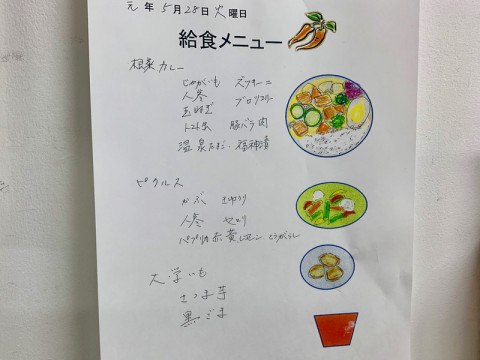 元年5月28日火曜日
給食メニュー
根菜カレー
じゃがいも ズッキーニ
人参 ブロッコリー
玉ねぎ
トマト缶 豚バラ肉
温泉たまご 福神漬
ピクルス
かぶ きゅうり
人参 セロリ
パプリカ赤黄 レモン とうがらし
大学いも
さつま芋
黒ごま